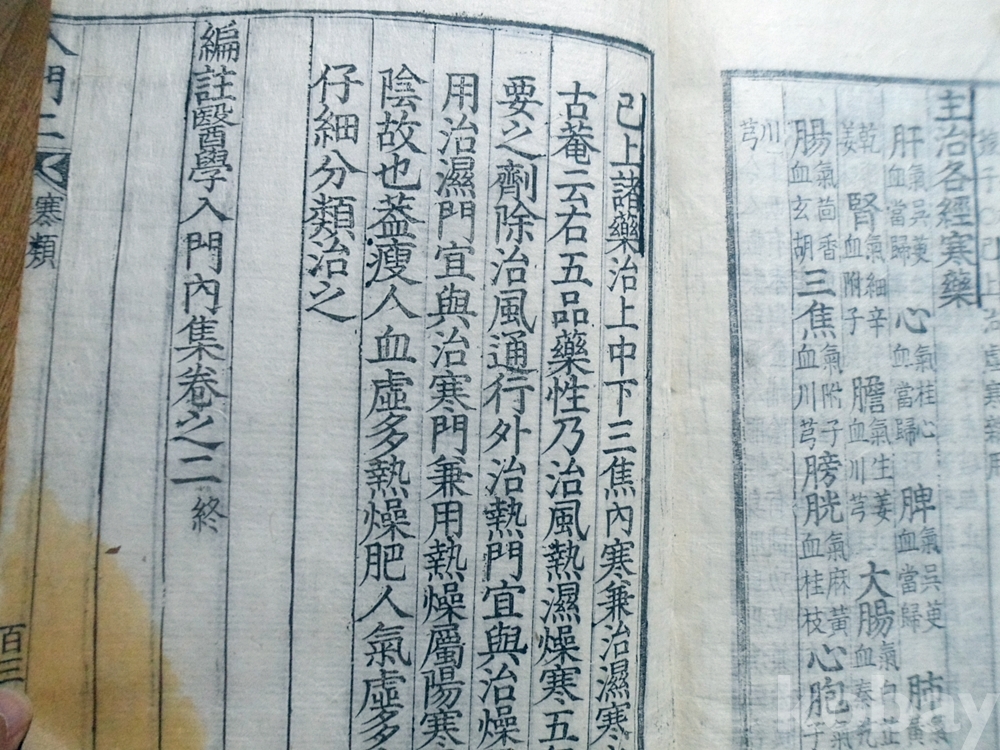 主治各經寒藥
肝氣吳茱血當歸心氣桂心血當歸脾氣吳茱血當歸肺
乾姜腎氣細辛血附子膽氣生姜血川芎大腸氣白芷血秦艽
腸氣茴香血玄胡三焦氣附子血川芎膀胱氣麻黃血桂枝心胞
川芎
已上諸藥治上中下三焦內寒兼治濕寒
古菴云右五品藥性乃治風熱濕燥寒五
要之劑除治風通行外治熱門宜與治燥
用治濕門宜與治寒門兼用熱燥屬陽寒
陰故也蓋瘦人血虛多熱燥肥人氣虛多
仔細分類治之
編註醫學入門內集卷之二終
入門二 寒類 百三